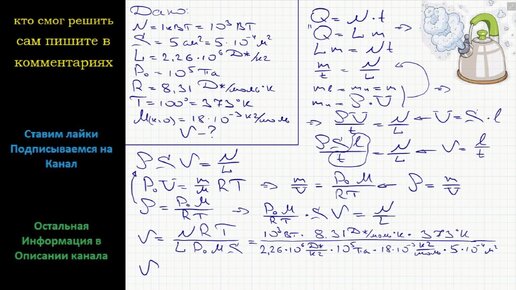 кто смог решить
сам пишите в
комментариях
Ставим лайки
Подписываемся на
Канал
Остальная
Информация в
Описании канала
Дано:
N = 1кВт = 10³ Вт
S = 5 см² = 5·10⁻⁴ м²
L = 2,26·10⁶ Дж/кг
P₀ = 10⁵ Па
R = 8,31 Дж/моль·К
T = 100° = 373°К
M(H₂O) = 18·10⁻³ кг/моль
V - ?
Q = N·t
Q = Lm
Lm = Nt
m/t = N/L
mₙ = ρ·V
ρV/t = N/L ← V = S·l
ρSl/t = N/L ← V = l/t
ρSV = N/L
P₀V = m/M RT => m/V = P₀M/RT ← ρ = m/V
ρ = P₀M/RT => P₀M/RT · SV = N/L
V = NRT/LP₀MS = 10³Вт · 8,31 Дж/моль·К · 373°К / 2,26·10⁶ Дж/кг · 10⁵Па · 18·10⁻³ кг/моль · 5·10⁻⁴м²
V